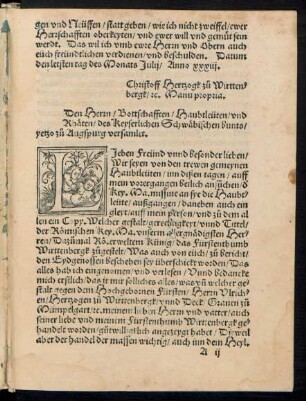 gen vnd Neüssen / statt geben / wie ich nicht zweiffel / ewer
Herrschafften oberkeyten / vnd ewer will vnd gemüt sein
werdt. Das wil ich vmb ewer Herrn vnd Obern auch
euch freündtlichen verdienen vnd beschulden. Datum
den letsten tag des Monats Julij / Anno xxxiij.
Christoff Hertzogk zu Wirten-
bergk / ꝛc. Manu propria.
Den Herrn / Bottschafften / Haubtleüten / vnd
Rhäten / des Keyserlichen Schwäbischen bunts /
yetzo zu Augspurg versamlet.
LIeben Freünd vnnd besonder lieben /
Wir seyen von den trewen gemeynen
Haubtleüten / inn dißen tagen / auff
mein vorgegangen
Key. Ma. mißiue an sie die Haubt-
leüte / außgangen / daneben auch ein
auff mein person / vnd zu dem al
len ein Copy. Welcher gestalt / gerechtigkeyt / vnd Tittel /
der Römischen Key. Ma. vnserm allergnädigsten Her
ren / Dazumal Rö. erweltem Künig / das Fürstenthumb
Wirttenbergk zugestelt / Was auch von euch / zu bericht /
den Eydgenossen beschehen sey / überschickt worden / Das
alles hab ich eingenomen / vnd verlesen / Vnnd bedanck
mich erstlich / das ir mir söllichs alles / was / vnd welcher ge
stalt gegen dem Hochgebornen Fürsten / Herrn Vlrich /
en / Hertzogen zu Wirttenbergk / vnd Teck / Grauen zu
Mümpelgart / ꝛc. meinem lieben Herrn vnd vatter / auch
seiner liebe vnd meinem Fürstenthumb Wirttenbergk ge
handelt worden / gůtwilligklich angezeygt habt. Dieweil
aber der handel der massen wichtig / auch inn dem Heyl.
A ij